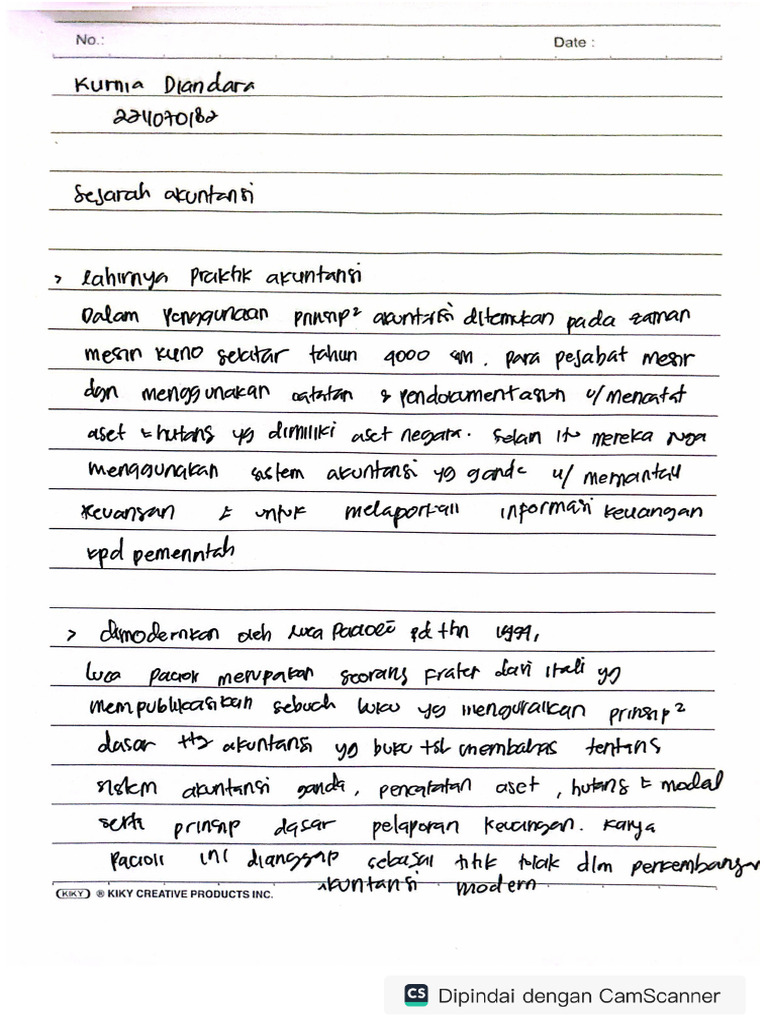 No.:
Date :
Kurnia Diandara
224070182
Sejarah akuntansi
> Lahirnya praktik akuntansi
Dalam penggunaan prinsip² akuntansi ditemukan pada zaman
mesir kuno sekitar tahun 4000 sm. para pejabat mesir
dgn menggunakan catatan & pendokumentasian u/ mencatat
aset & hutang yg dimiliki aset negara. selain itu mereka juga
menggunakan sistem akuntansi yg ganda u/ memantau
keuangan & untuk melaporkan informasi keuangan
kpd pemerintah
> dimodernkan oleh Luca Pacioli pd thn 1494,
Luca pacioli merupakan seorang Frater dari itali yg
mempublikasikan sebuah buku yg menguraikan prinsip²
dasar ttg akuntansi yg buku tsb membahas tentang
sistem akuntansi ganda, pencatatan aset, hutang & modal
serta prinsip dasar pelaporan keuangan. Karya
Pacioli ini dianggap sebagai titik tolak dlm perkembangan
akuntansi modern
KIKY ® KIKY CREATIVE PRODUCTS INC.
CS Dipindai dengan CamScanner